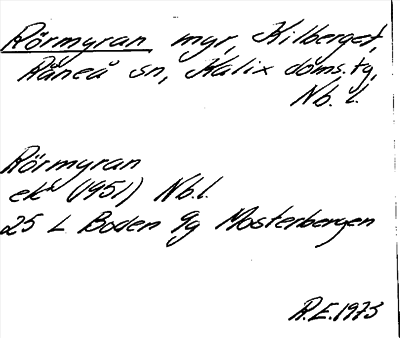 Rörmyran myr, Kilberget,
Råneå sn, Kalix doms.tg,
Nb. l.
Rörmyran
ek (1951) Nb.l.
25 L Boden 9g Mosterbergen
R.E. 1975